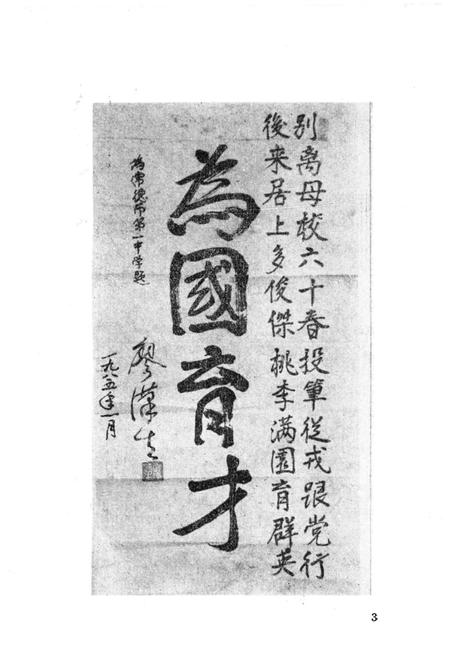 别离母校六十春投筆從戎跟党行
後来居上多俊傑桃李满園育群英
為國育才
為常德市第一中学题
廖漢生
一九八五年一月
3